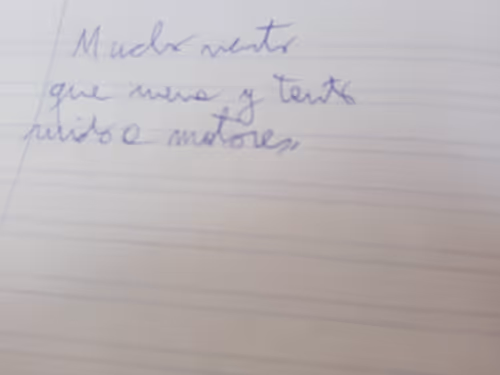 Mucho viento
que mueve y tanto
ruido a motores,